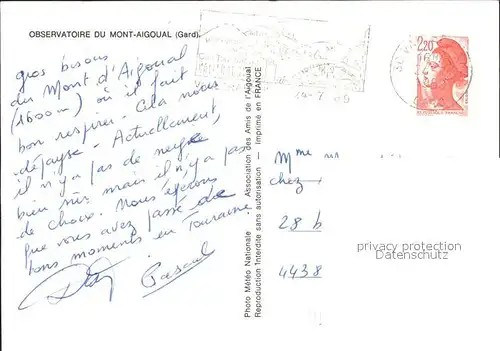 OBSERVATOIRE DU MONT-AIGOUAL (Gard).
gros bisous
du Mont d'Aigoual
(1600m) où il fait
bon respirer. Cela nous
dépayse. Actuellement,
il n'y a pas de neige
bien sûr mais il n'y a pas
de choux. Nous espérons
que vous avez passé de
bons moments en Touraine.
Pascal
Photo Météo Nationale Association des Amis de l'Aigoual
Reproduction Interdite sans autorisation - Imprimé en FRANCE
2,20
Mme
chez
28 b
4438
privacy protection
Datenschutz